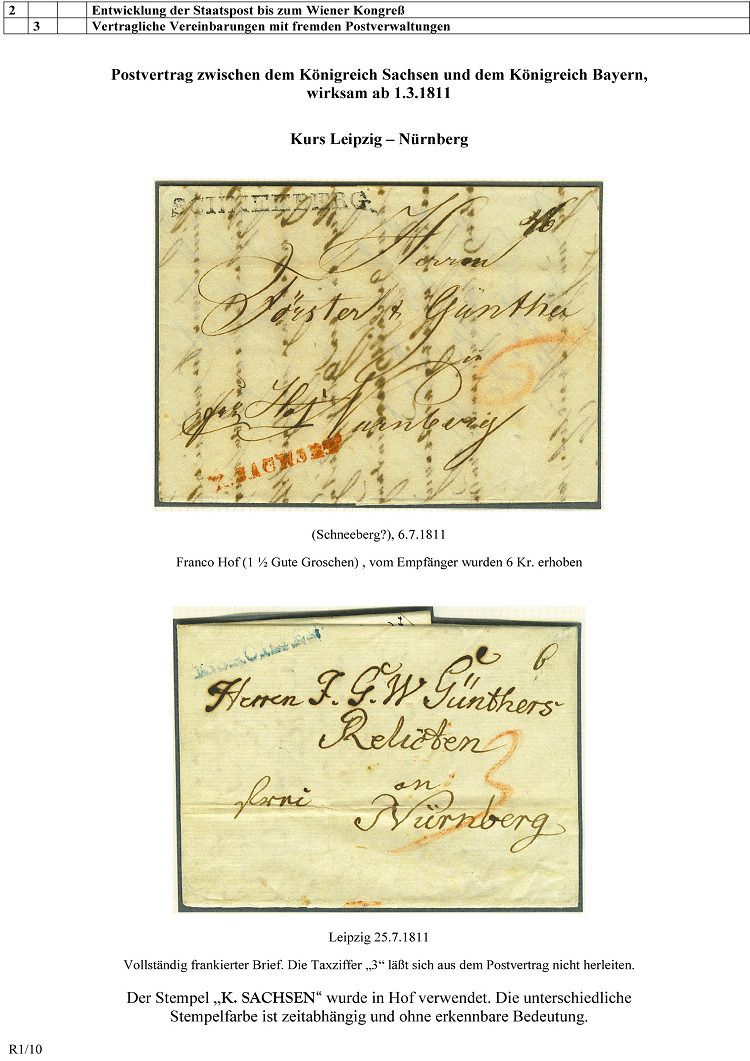 2 Entwicklung der Staatspost bis zum Wiener Kongreß
3 Vertragliche Vereinbarungen mit fremden Postverwaltungen
Postvertrag zwischen dem Königreich Sachsen und dem Königreich Bayern,
wirksam ab 1.3.1811
Kurs Leipzig – Nürnberg
SCHNEEBERG
Herrn
Förster & Günther
in
Hof Nürnberg
K. SACHSEN
(Schneeberg?), 6.7.1811
Franco Hof (1 ½ Gute Groschen) , vom Empfänger wurden 6 Kr. erhoben
K. SACHSEN
Herren J. G. W Günthers
Relicten
3
frei an
Nürnberg
Leipzig 25.7.1811
Vollständig frankierter Brief. Die Taxziffer „3“ läßt sich aus dem Postvertrag nicht herleiten.
Der Stempel „K. SACHSEN“ wurde in Hof verwendet. Die unterschiedliche
Stempelfarbe ist zeitabhängig und ohne erkennbare Bedeutung.
R1/10